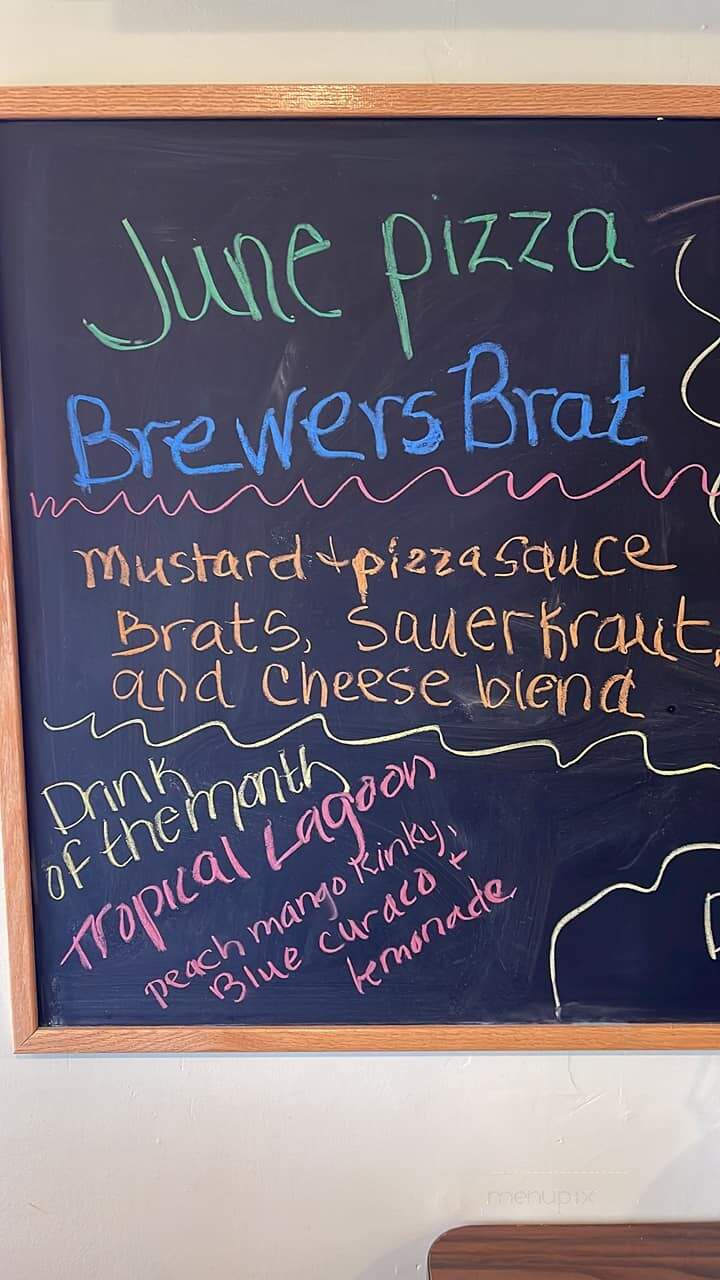 June pizza
Brewers Brat
Mustard + pizza sauce
Brats, Sauerkraut,
and Cheese blend
Drink
of the month
Tropical Lagoon
peach mango Kinky,
Blue curaco +
lemonade
menupix